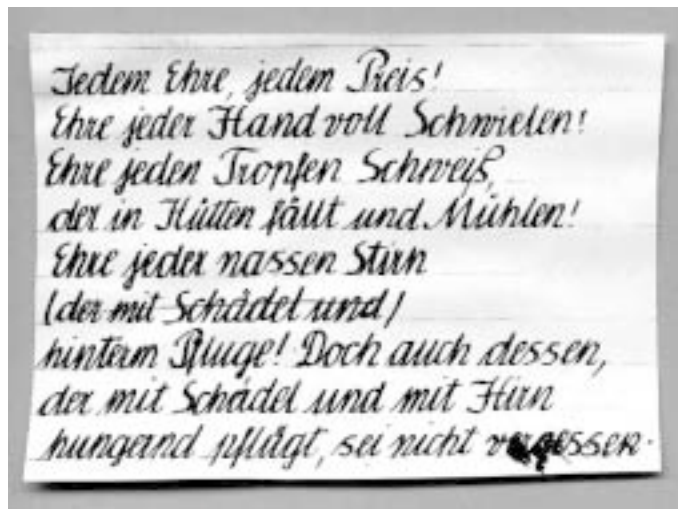 Jedem Ehre, jedem Preis!
Ehre jeder Hand voll Schwielen!
Ehre jeden Tropfen Schweiß,
der in Hütten fällt und Mühlen!
Ehre jeder nassen Stirn
(der mit Schädel und)
hinterm Pfluge! Doch auch dessen,
der mit Schädel und mit Hirn
hungernd pflügt, sei nicht vergessen.